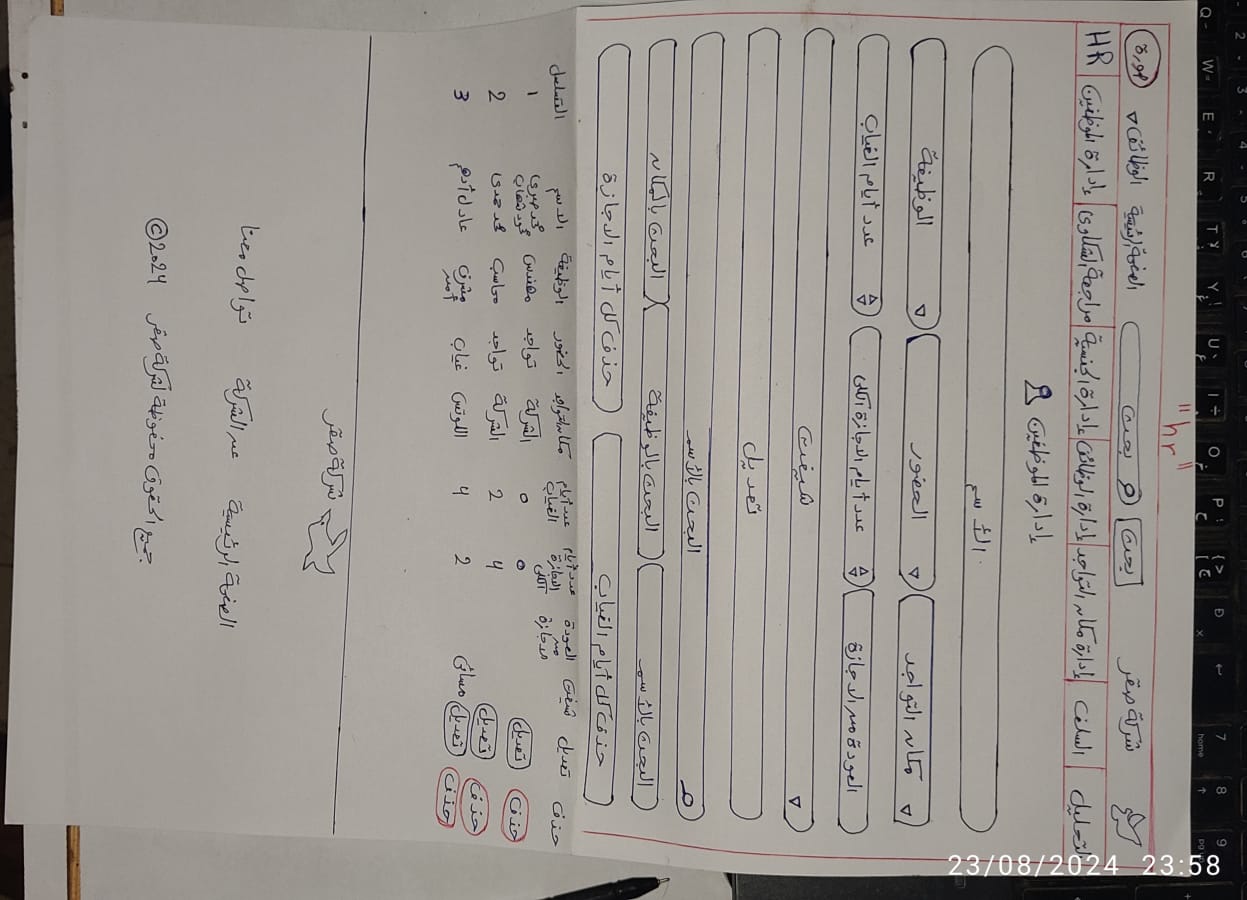 "hr"
شركة صقر بحث بحث الصفحة الرئيسية الوظائف صورة
التحليل السلف إدارة مكان التواجد إدارة الوظائف إدارة الجنسية مراجعة الشكاوى إدارة الموظفين HR
إدارة الموظفين
الأسم
مكان التواجد الحضور الوظيفة
العودة من الاجازة عدد أيام الاجازة الكلى عدد أيام الغياب
شيفت
تعديل
البحث بالأسم
البحث بالأسم البحث بالوظيفة البحث بالمكان
حذف كل أيام الغياب حذف كل أيام الاجازة
حذف تعديل شيفت العودة من الاجازة عدد أيام الاجازة الكلى عدد أيام الغياب مكان التواجد الحضور الوظيفة الاسم التسلسل
حذف تعديل 0 0 الشركة تواجد مهندس محمد صبرى محمود شهاب 1
حذف تعديل 4 2 الشركة تواجد محاسب محمد حمدى 2
حذف تعديل مسائى 2 4 اللوتس غياب مشرف أمن عادل أدهم 3
شركة صقر
الصفحة الرئيسية عن الشركة تواصل معنا
جميع الحقوق محفوظة لشركة صقر 2024 ©
23/08/2024 23:58